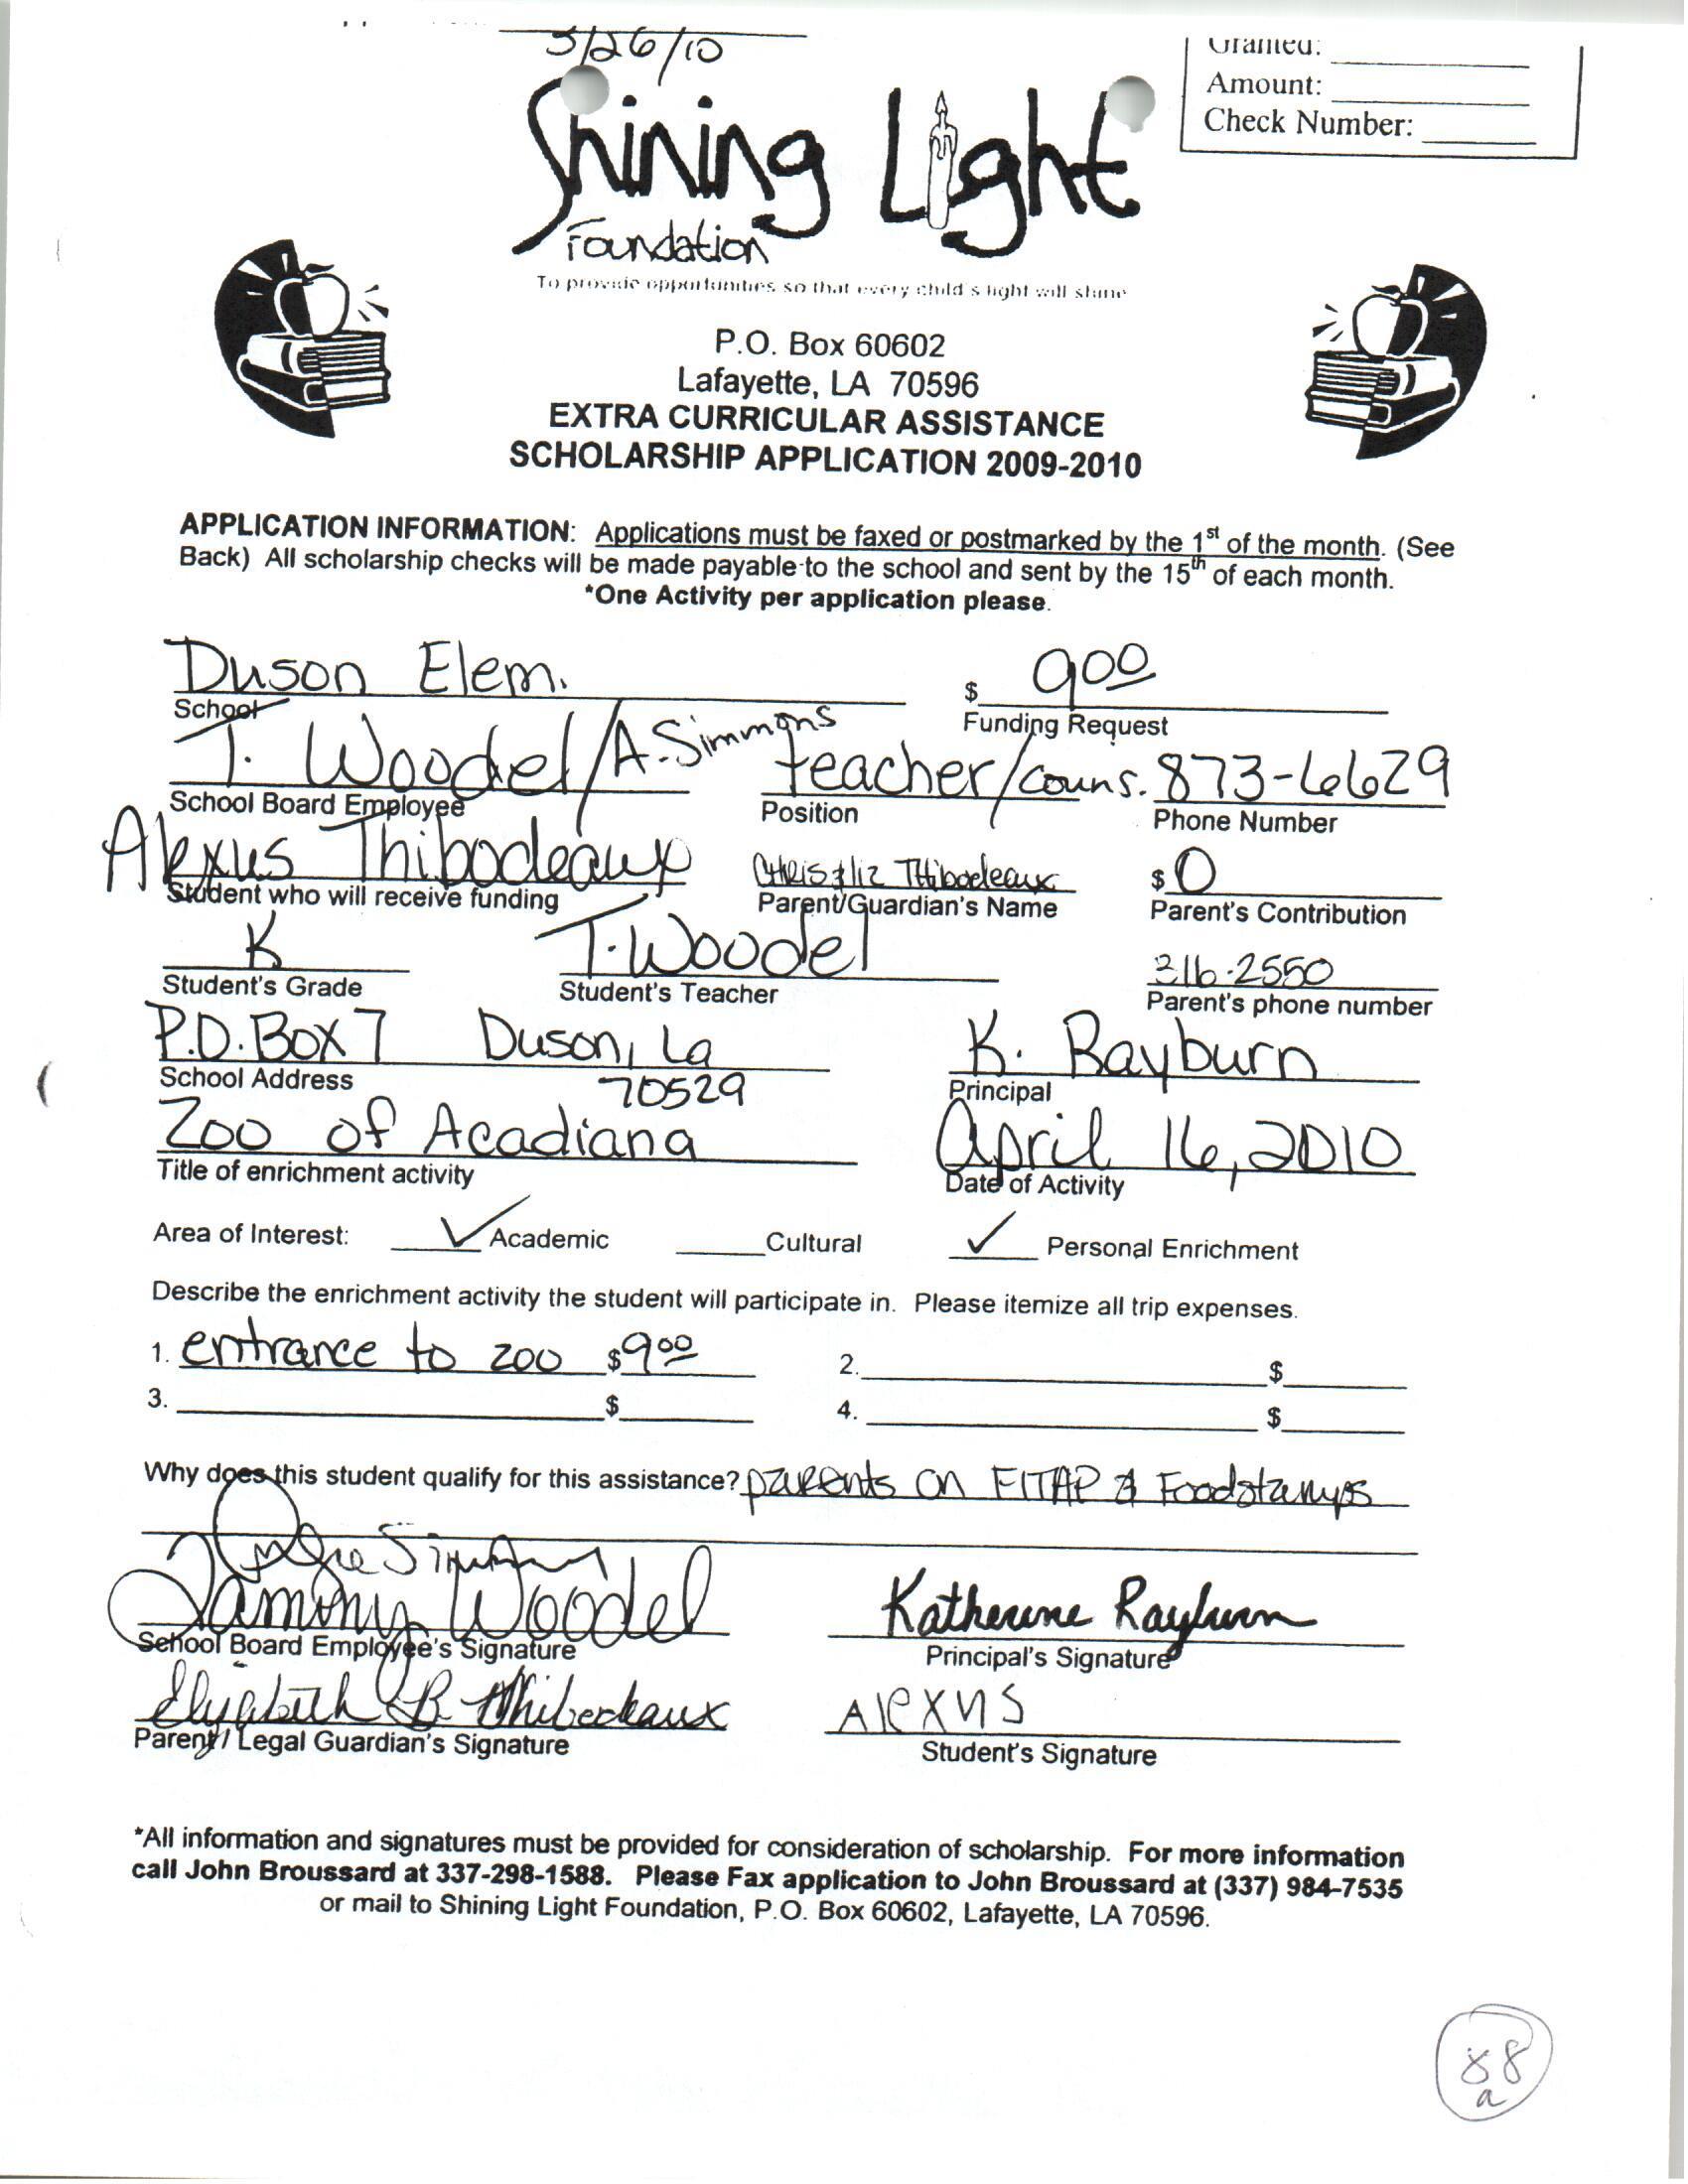 3/26/10
Granted:
Amount:
Check Number:
Shining Light
Foundation
To provide opportunities so that every child's light will shine
P.O. Box 60602
Lafayette, LA 70596
EXTRA CURRICULAR ASSISTANCE
SCHOLARSHIP APPLICATION 2009-2010
APPLICATION INFORMATION: Applications must be faxed or postmarked by the 1st of the month. (See
Back) All scholarship checks will be made payable to the school and sent by the 15th of each month.
*One Activity per application please.
Duson Elem. $ 9 00
School Funding Request
T. Woodel/A. Simmons teacher/couns. 873-6629
School Board Employee Position Phone Number
Alexus Thibodeaux Chris & liz Thibodeaux $ 0
Student who will receive funding Parent/Guardian's Name Parent's Contribution
K T. Woodel 316-2550
Student's Grade Student's Teacher Parent's phone number
P.O. Box 7 Duson, La K. Rayburn
School Address 70529 Principal
Zoo of Acadiana April 16, 2010
Title of enrichment activity Date of Activity
Area of Interest: ✓ Academic Cultural ✓ Personal Enrichment
Describe the enrichment activity the student will participate in. Please itemize all trip expenses.
1. entrance to zoo $9 00 2. $
3. $ 4. $
Why does this student qualify for this assistance? parents on FITAP & Foodstamps
Simmons
Tammy Woodel Katherine Rayburn
School Board Employee's Signature Principal's Signature
Elizabeth B. Thibodeaux Alexus
Parent / Legal Guardian's Signature Student's Signature
*All information and signatures must be provided for consideration of scholarship. For more information
call John Broussard at 337-298-1588. Please Fax application to John Broussard at (337) 984-7535
or mail to Shining Light Foundation, P.O. Box 60602, Lafayette, LA 70596.
88
a